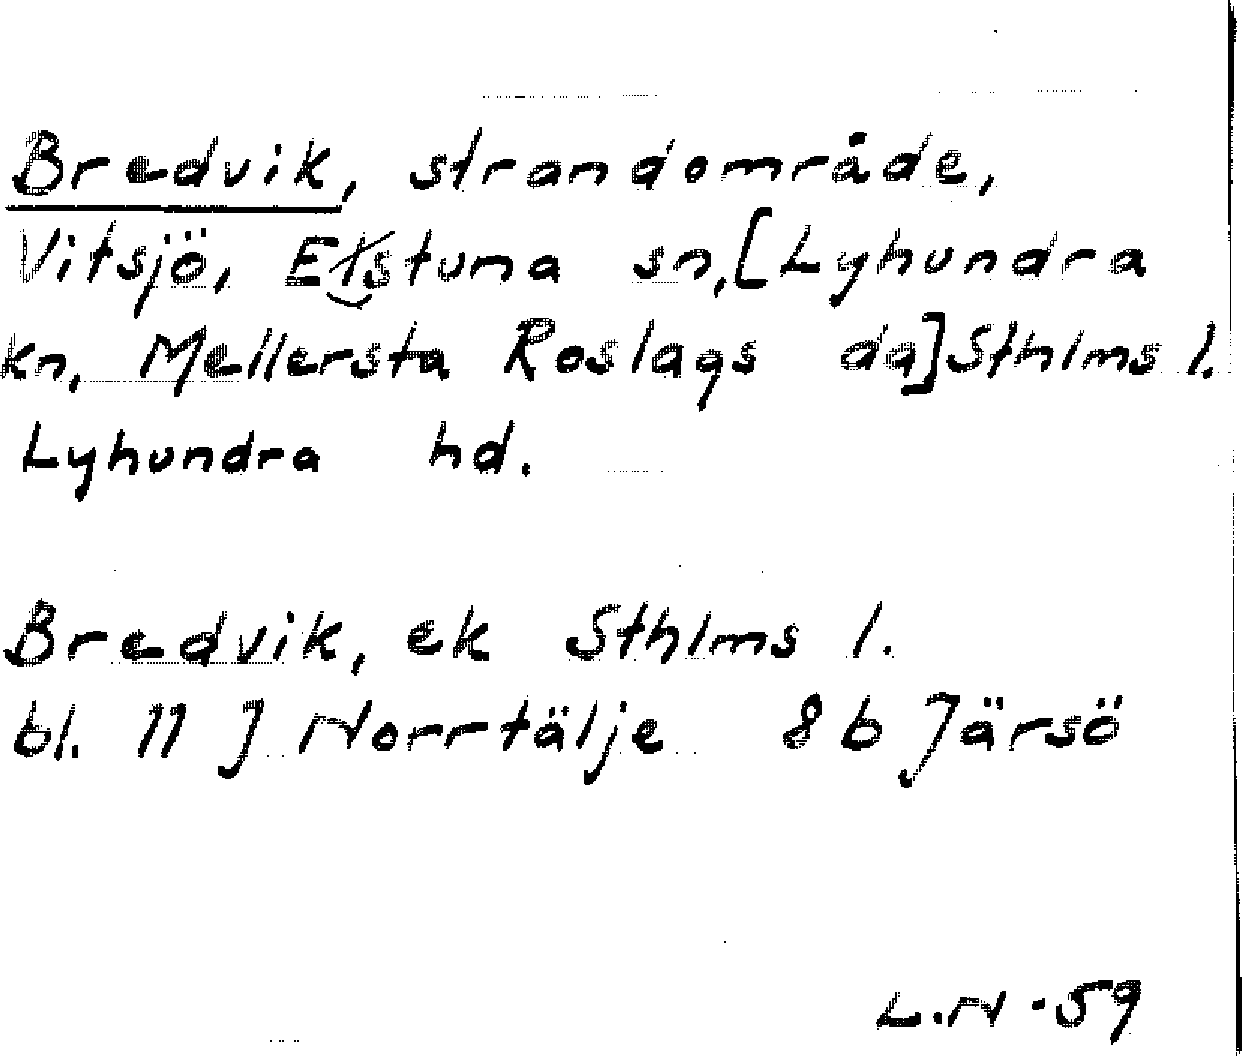 Bredvik, strandområde,
Vitsjö, Estuna sn, [Lyhundra
kn, Mellersta Roslags da] Sthlms l.
Lyhundra hd.
Bredvik, ek Sthlms l.
bl. 11 J Norrtälje 8 b Järsö
L.N -59